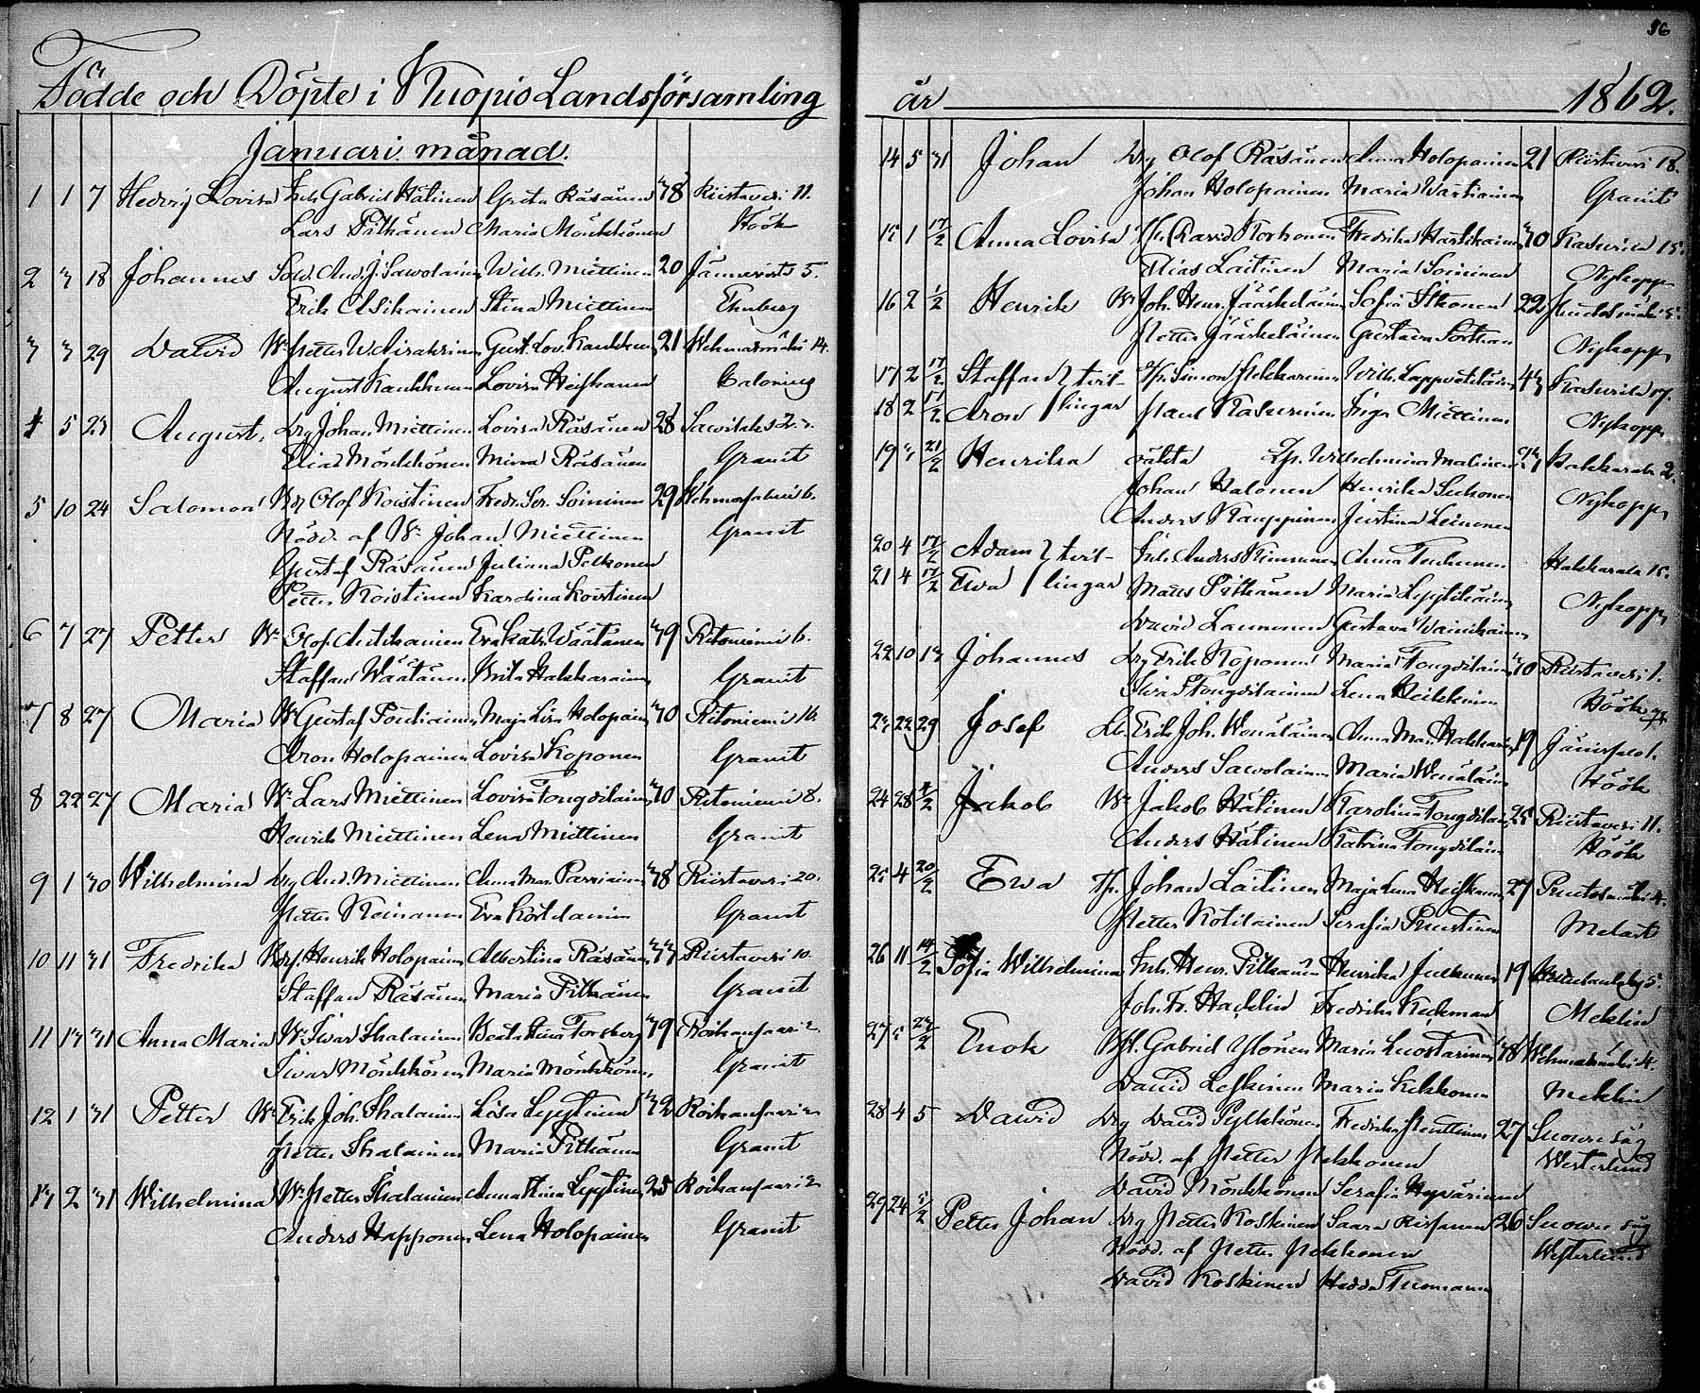 56
Födde och Döpte i Kuopio Landsförsamling år 1862.
Januari månad.
1 1 7 Hedvig Lovisa Inh. Gabriel Hätinen Greta Räsänen 38 Riistavesi 11.
Lars Pitkänen Maria Mönkkönen Höök
2 3 18 Johannes Sold. And. J. Sawolainen Wilh. Miettinen 20 Jännevirta 5.
Erik Asikainen Stina Miettinen Ehnberg
3 3 29 David Petter Gust. Lov. Kaukkunen 21 Wehmasmäki 14.
August Kaukkunen Lovisa Heiskanen Calonius
4 5 23 August, Drg Johan Miettinen Lovisa Räsänen 28 Sawilaks 2.
Elias Mönkkönen Miina Räsänen Granit
5 10 24 Salomon Olof Koistinen Fredr. Ser. Soininen 29 6.
Nödd. af Johan Miettinen Granit
Gustaf Räsänen Juliana Pelkonen
Petter Koistinen Karolina Koistinen
6 7 27 Petter Olof Antikainen Eva Katr. Väätänen 39 Ritoniemi 6.
Staffan Väätänen Brita Hakkarainen Granit
7 8 27 Maria Gustaf Maja Lisa Holopainen 30 Ritoniemi 16.
Aron Holopainen Lovisa Koponen Granit
8 22 27 Maria Lars Miettinen Lovisa Tengvilainen 30 Ritoniemi 8.
Henrik Miettinen Lena Miettinen Granit
9 1 30 Wilhelmina Drg And. Miettinen Anna Mar. Parviainen 38 Riistavesi 20.
Petter Roivanen Eva Granit
10 11 31 Fredrika Henrik Holopainen Albertina Räsänen 33 Riistavesi 10.
Staffan Räsänen Maria Pitkänen Granit
11 13 31 Anna Maria Ivar Ihalainen Beata Stina Forsberg 39 Roikansaari 2.
Ivar Mönkkönen Maria Mönkkönen Granit
12 1 31 Petter Erik Joh. Ihalainen Lisa Leppänen 32 Roikansaari 2.
Petter Ihalainen Maria Pitkänen Granit
13 2 31 Wilhelmina Petter Ihalainen Anna Stina 25 Roikansaari 2
Anders Happonen Lena Holopainen Granit
14 5 31 Johan Drg Olof Räsänen Anna Holopainen 21 Riistavesi 18.
Johan Holopainen Maria Wartiainen Granit
15 1 17/2 Anna Lovisa David Korhonen Fredrika Hartikainen 30 Kasurila 15.
Elias Laitinen Maria Soininen Nykopp
16 2 1/2 Henrik Joh. Henr. Jääskeläinen Sofia Itkonen 22
Petter Jääskeläinen Gustava Nykopp
17 2 17/2 Staffan } tvil- Simon Hakkarainen Wilh. 43 Kasurila 17.
18 2 17/2 Aron } lingar Paul Kasurinen Inga Miettinen Nykopp
19 3 21/2 Henrika oäkta Wilhelmina Malinen Hakkarala 2.
Johan Halonen Henrika Nykopp
Anders Kauppinen Justina Leinonen
20 4 17/2 Adam } tvil- Inh. Anders Anna Hakkarala 15.
21 4 17/2 Ewa } lingar Matts Pitkänen Maria Nykopp
David Launonen Gustava Wainikainen
22 10 13 Johannes Drg Erik Koponen Maria Tengvilainen 30 Riistavesi 1.
Ivar Tengvilainen Lena Heikkinen Höök
23 22 29 Josef Erik Joh. Wenäläinen Anna Mar. Hakkarainen 19
Anders Sawolainen Maria Wenäläinen Höök
24 28 2/2 Jakob Jakob Hätinen Karolina Tengvilainen 25 Riistavesi 11.
Anders Hätinen Katrina Tengvilainen Höök
25 4 20/2 Ewa Johan Laitinen Maja Lena Heiskanen 27 4.
Petter Kotilainen Serafia Puustinen Melart
26 11 14/2 Sofia Wilhelmina Inh. Henr. Pitkänen Henrika 19 5.
Joh. Fr. Hacklin Fredrika Meklin
27 5 23/2 Enok Gabriel Ylönen Maria Luostarinen 38 Wehmasmäki 4.
David Leskinen Maria Kekkonen Meklin
28 4 5 David Drg David Pylkkönen Fredrika Penttinen 27
Nödd. af Petter Pekkonen Westerlund
David Mönkkönen Serafia Hyvärinen
29 24 5/2 Petter Johan Drg Petter Koskinen Saara 26
Nödd. af Petter Pekkonen Westerlund
David Koskinen Hedda Tuomainen